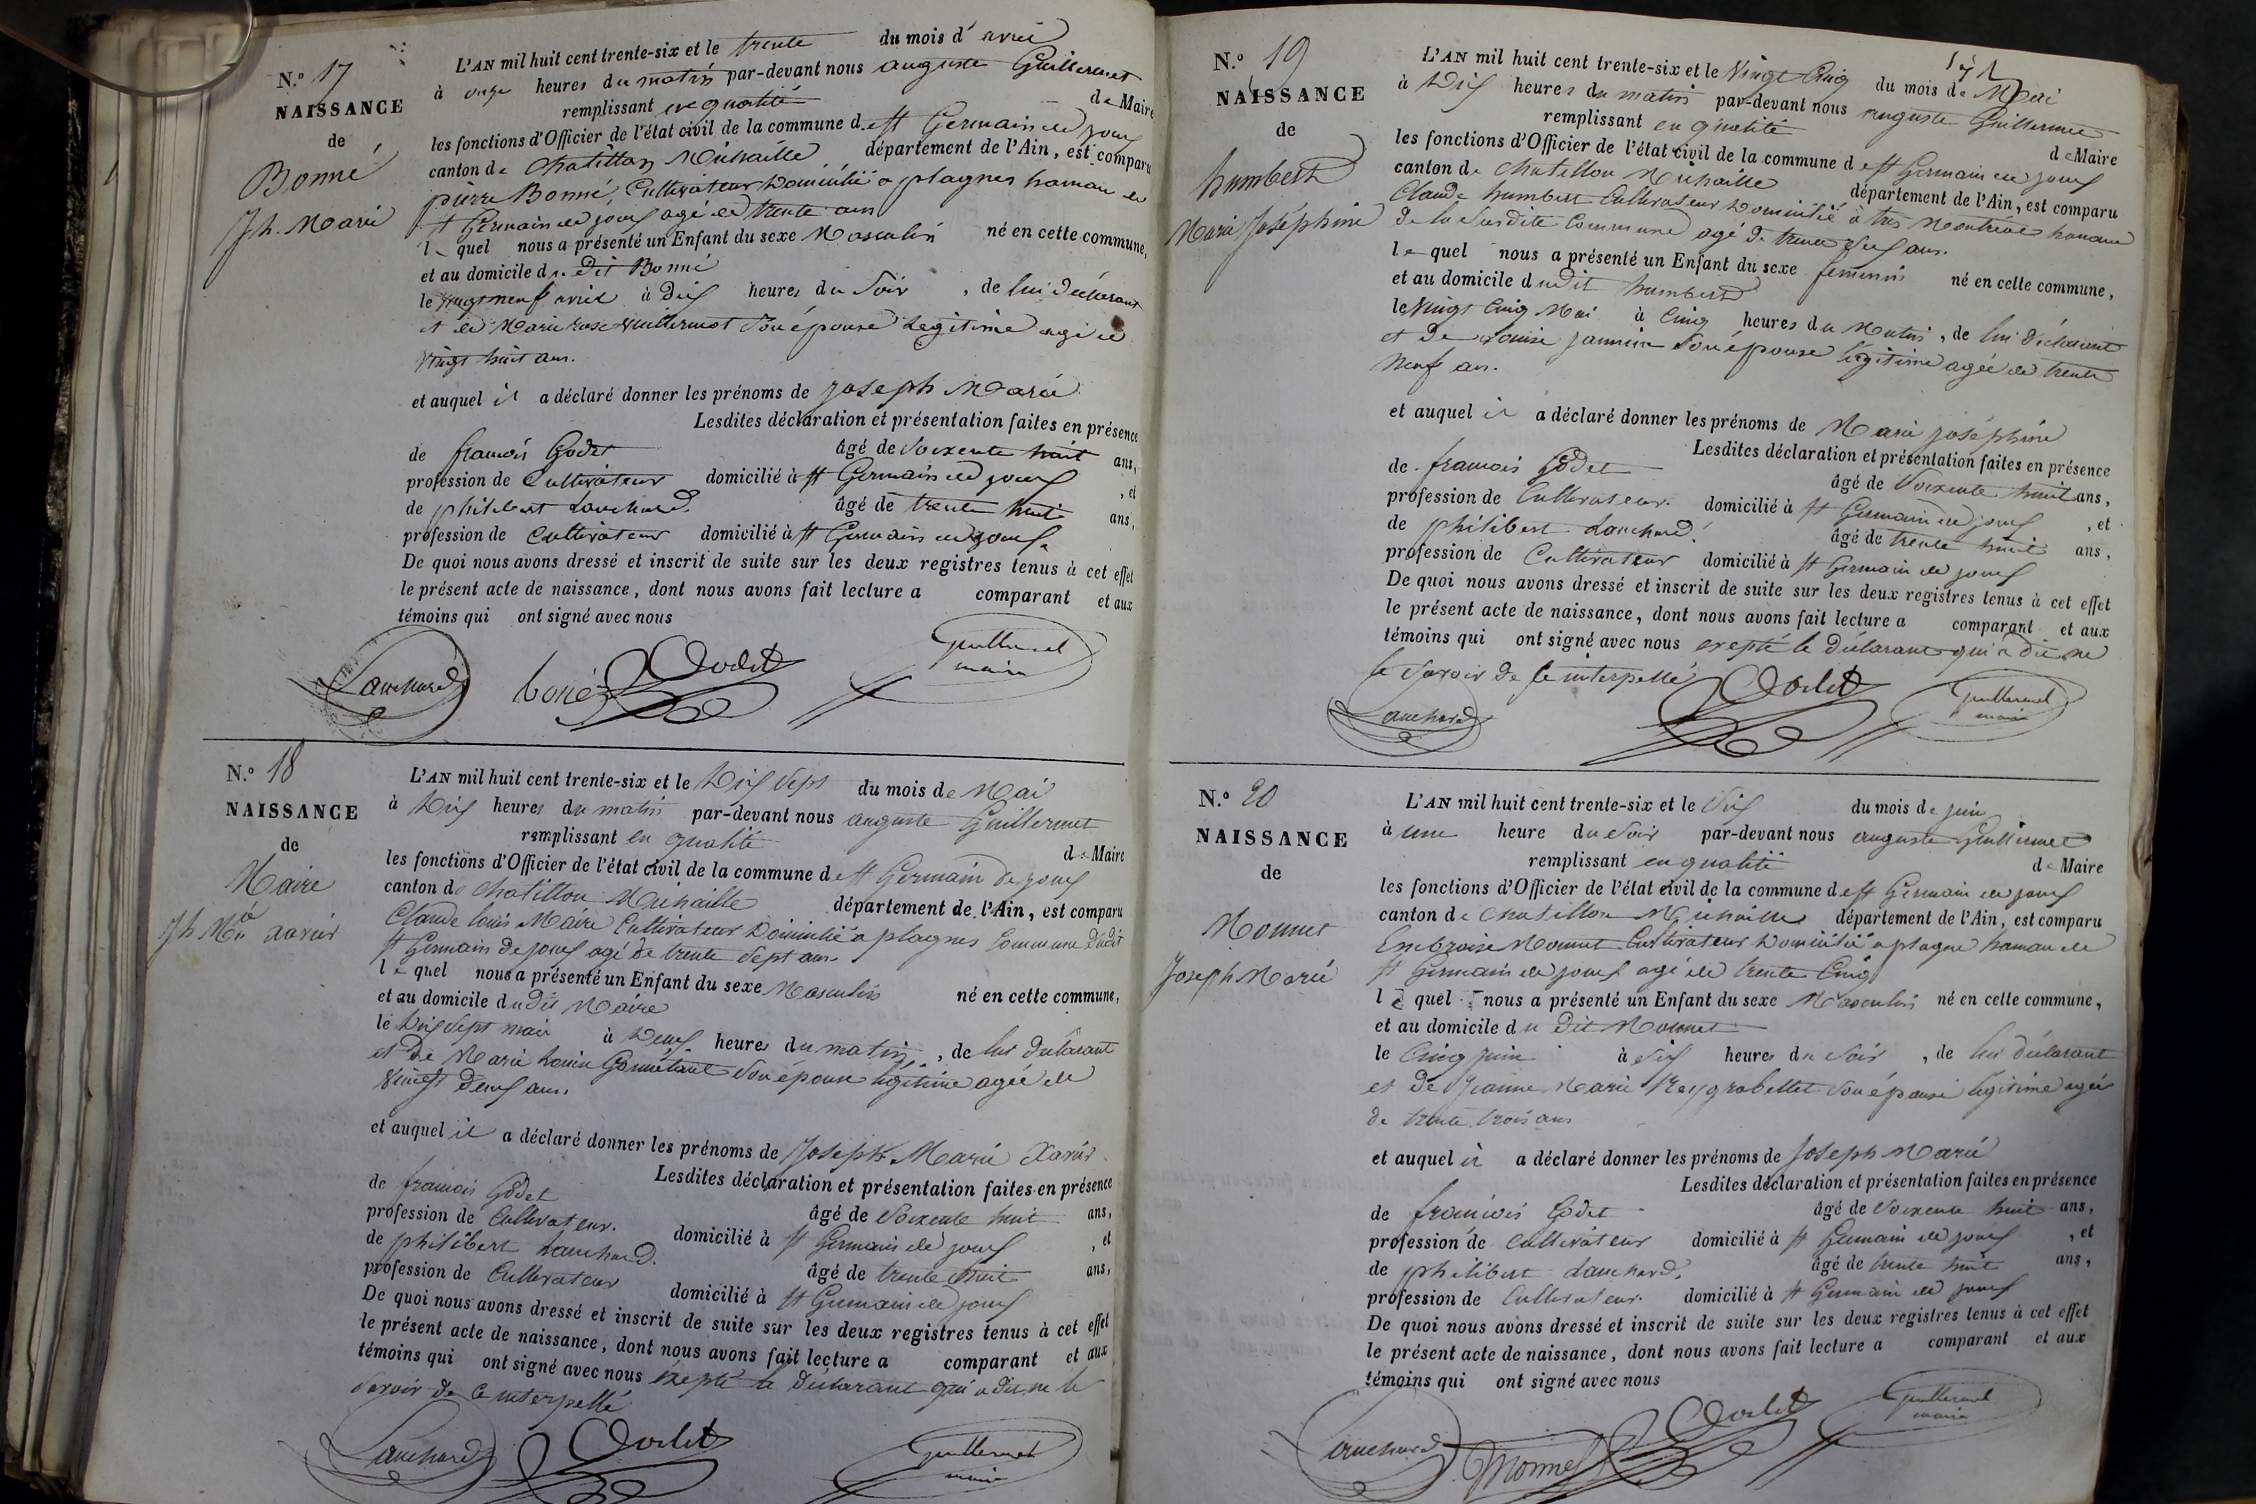 N.º 17
NAISSANCE
de
Bonné
Jh. Marie
L'AN mil huit cent trente-six et le trente du mois d' avril
à onze heures du matin par-devant nous auguste Guillermet
remplissant en qualité de Maire
les fonctions d'Officier de l'état civil de la commune de st Germain de joux
canton de Chatillon Michaille département de l'Ain, est comparu
pierre Bonné, Cultivateur Domicilié a plagnes hamau de
st Germain de joux agé de trente ans
le quel nous a présenté un Enfant du sexe Masculin né en cette commune,
et au domicile du dit Bonné
le vingt neuf avril à Dix heures du Soir , de lui déclarant
et de Marie rose vuillermot son épouse legitime agé de
vingt huit ans.
et auquel il a déclaré donner les prénoms de joseph Marie
Lesdites déclaration et présentation faites en présence
de francois Godet âgé de Soixente huit ans,
profession de Cultivateur domicilié à st Germain de joux , et
de philibert Lanchard. âgé de trente huit ans,
profession de cultivateur domicilié à st Germain de joux.
De quoi nous avons dressé et inscrit de suite sur les deux registres tenus à cet effet
le présent acte de naissance, dont nous avons fait lecture a comparant et aux
témoins qui ont signé avec nous
Lanchard boné Godet Guillermet
maire
N.º 18
NAISSANCE
de
Maire
Jh Mie xavier
L'AN mil huit cent trente-six et le Dix Sept du mois de Mai
à Dix heures du matin par-devant nous auguste Guillermet
remplissant en qualité de Maire
les fonctions d'Officier de l'état civil de la commune de st Germain de joux
canton de Chatillon Michaille département de l'Ain, est comparu
Claude louis Maire Cultivateur Domicilié a plagnes Commune Dudit
st Germain de joux agé de trente Sept ans.
le quel nous a présenté un Enfant du sexe Masculin né en cette commune,
et au domicile du dit Maire
le Dix Sept mai à Deux heures du matin , de lui déclarant
et De Marie son épouse légitime agée de
vingt Deux ans.
et auquel il a déclaré donner les prénoms de Joseph Marie Xavier
Lesdites déclaration et présentation faites en présence
de francois Godet âgé de Soixente huit ans,
profession de Cultivateur. domicilié à st Germain de joux , et
de philibert Lanchard. âgé de trente huit ans,
profession de Cultivateur domicilié à st Germain de joux
De quoi nous avons dressé et inscrit de suite sur les deux registres tenus à cet effet
le présent acte de naissance, dont nous avons fait lecture a comparant et aux
témoins qui ont signé avec nous éxepté le Déclarant qui a dit ne le
Savoir de ce interpellé
Lanchard Godet Guillermet
maire
N.º 19
NAISSANCE
de
humbert
Marie Joséphine
L'AN mil huit cent trente-six et le Vingt Cinq du mois de Mai
à Dix heures du matin par-devant nous auguste Guillermet
remplissant en qualité de Maire
les fonctions d'Officier de l'état civil de la commune de st Germain de joux
canton de Chatillon Michaille département de l'Ain, est comparu
Claude humbert Cultivateur Domicilié a tres Montréal hamau
de la Susdite Commune agé De trente Six ans.
le quel nous a présenté un Enfant du sexe feminin né en cette commune,
et au domicile du dit humbert
le Vingt Cinq Mai à Cinq heures du Matin , de lui déclarant
et De Louise son épouse légitime agée de trente
neuf ans.
et auquel il a déclaré donner les prénoms de Marie joséphine
Lesdites déclaration et présentation faites en présence
de francois Godet âgé de Soixente huit ans,
profession de Cultivateur. domicilié à st Germain de joux , et
de philibert Lanchard. âgé de trente huit ans,
profession de Cultivateur domicilié à st Germain de joux
De quoi nous avons dressé et inscrit de suite sur les deux registres tenus à cet effet
le présent acte de naissance, dont nous avons fait lecture a comparant et aux
témoins qui ont signé avec nous exepté le Déclarant qui a dit ne
le Savoir De ce interpellé
Lanchard Godet Guillermet
maire
N.º 20
NAISSANCE
de
Monnet
Joseph Marie
L'AN mil huit cent trente-six et le Six du mois de juin
à une heure du Soir par-devant nous auguste Guillermet
remplissant en qualité de Maire
les fonctions d'Officier de l'état civil de la commune de st Germain de joux
canton de Chatillon Michaille département de l'Ain, est comparu
Embroise Monnet Cultivateur Domicilié a plagne hamau de
st Germain de joux agé de trente Cinq
le quel nous a présenté un Enfant du sexe Masculin né en cette commune,
et au domicile du dit Monnet
le Cinq juin à Six heures du Soir , de lui déclarant
et De Jeanne Marie Reygrobellet son épouse légitime agée
de trente trois ans
et auquel il a déclaré donner les prénoms de Joseph Marie
Lesdites déclaration et présentation faites en présence
de francois Godet âgé de Soixente huit ans,
profession de cultivateur domicilié à st Germain de joux , et
de philibert Lanchard. âgé de trente huit ans,
profession de Cultivateur domicilié à st Germain de joux
De quoi nous avons dressé et inscrit de suite sur les deux registres tenus à cet effet
le présent acte de naissance, dont nous avons fait lecture a comparant et aux
témoins qui ont signé avec nous
Lanchard Monnet Godet Guillermet
maire